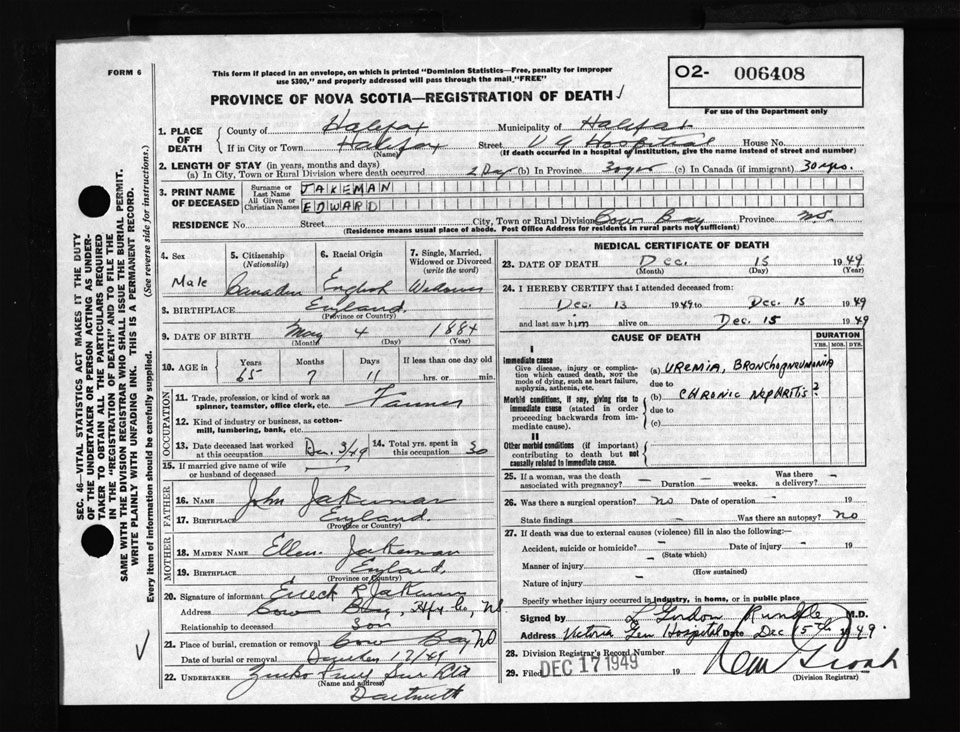 FORM 6
This form if placed in an envelope, on which is printed "Dominion Statistics—Free, penalty for improper
use $300," and properly addressed will pass through the mail "FREE"
PROVINCE OF NOVA SCOTIA—REGISTRATION OF DEATH
O2- 006408
For use of the Department only
1. PLACE OF DEATH
County of Halifax Municipality of Halifax
If in City or Town Halifax Street V G Hospital House No.
(Name) (If death occurred in a hospital or institution, give the name instead of street and number)
2. LENGTH OF STAY (in years, months and days)
(a) In City, Town or Rural Division where death occurred 2 Day (b) In Province 30 yrs (c) In Canada (if immigrant) 30 yrs.
3. PRINT NAME OF DECEASED
Surname or Last Name JAKEMAN
All Given or Christian Names EDWARD
RESIDENCE No. Street City, Town or Rural Division Cow Bay Province NS.
(Residence means usual place of abode. Post Office Address for residents in rural parts not sufficient)
4. Sex Male
5. Citizenship (Nationality) Canadian
6. Racial Origin English
7. Single, Married, Widowed or Divorced (write the word) Widower
8. BIRTHPLACE England.
(Province or Country)
9. DATE OF BIRTH May 4 1884
(Month) (Day) (Year)
10. AGE in Years Months Days If less than one day old
65 7 11 hrs. or min.
OCCUPATION
11. Trade, profession, or kind of work as spinner, teamster, office clerk, etc. Farmer
12. Kind of industry or business, as cotton-mill, lumbering, bank, etc.
13. Date deceased last worked at this occupation Dec. 3/49
14. Total yrs. spent in this occupation 30
15. If married give name of wife or husband of deceased
FATHER
16. NAME John Jakeman
17. BIRTHPLACE England.
(Province or Country)
MOTHER
18. MAIDEN NAME Ellen Jakeman
19. BIRTHPLACE England,
(Province or Country)
20. Signature of informant R Jakeman
Address Cow Bay, Hfx Co, NS
Relationship to deceased Son
21. Place of burial, cremation or removal Cow Bay NS
Date of burial or removal December 17/49
22. UNDERTAKER
(Name and address)
Dartmouth
MEDICAL CERTIFICATE OF DEATH
23. DATE OF DEATH Dec. 15 1949
(Month) (Day) (Year)
24. I HEREBY CERTIFY that I attended deceased from:
Dec. 13 1949 to Dec. 15 1949
and last saw him alive on Dec. 15 1949
CAUSE OF DEATH
DURATION
YRS. MOS. DYS.
I
Immediate cause
Give disease, injury or complication which caused death, NOT the mode of dying, such as heart failure, asphyxia, asthenia, etc.
(a) UREMIA, BRONCHOPNEUMONIA
due to
Morbid conditions, if any, giving rise to immediate cause (stated in order proceeding backwards from immediate cause).
(b) CHRONIC NEPHRITIS?
due to
(c)
II
Other morbid conditions (if important) contributing to death but not causally related to immediate cause.
25. If a woman, was the death associated with pregnancy? - Duration - weeks. Was there a delivery? -
26. Was there a surgical operation? no Date of operation - 19
State findings - Was there an autopsy? No
27. If death was due to external causes (violence) fill in also the following:—
Accident, suicide or homicide? - Date of injury - 19
(State which)
Manner of injury -
(How sustained)
Nature of injury -
Specify whether injury occurred in industry, in home, or in public place
Signed by L Gordon Rundle M.D.
Address Victoria Gen Hospital Date Dec 15th 1949.
28. Division Registrar's Record Number
29. Filed DEC 17 1949 19
(Division Registrar)
SEC. 46—VITAL STATISTICS ACT MAKES IT THE DUTY
OF THE UNDERTAKER OR PERSON ACTING AS UNDER-
TAKER TO OBTAIN ALL THE PARTICULARS REQUIRED
IN THE "REGISTRATION OF DEATH" AND TO FILE THE
SAME WITH THE DIVISION REGISTRAR WHO SHALL ISSUE THE BURIAL PERMIT.
WRITE PLAINLY WITH UNFADING INK. THIS IS A PERMANENT RECORD.
Every item of information should be carefully supplied. (See reverse side for instructions.)